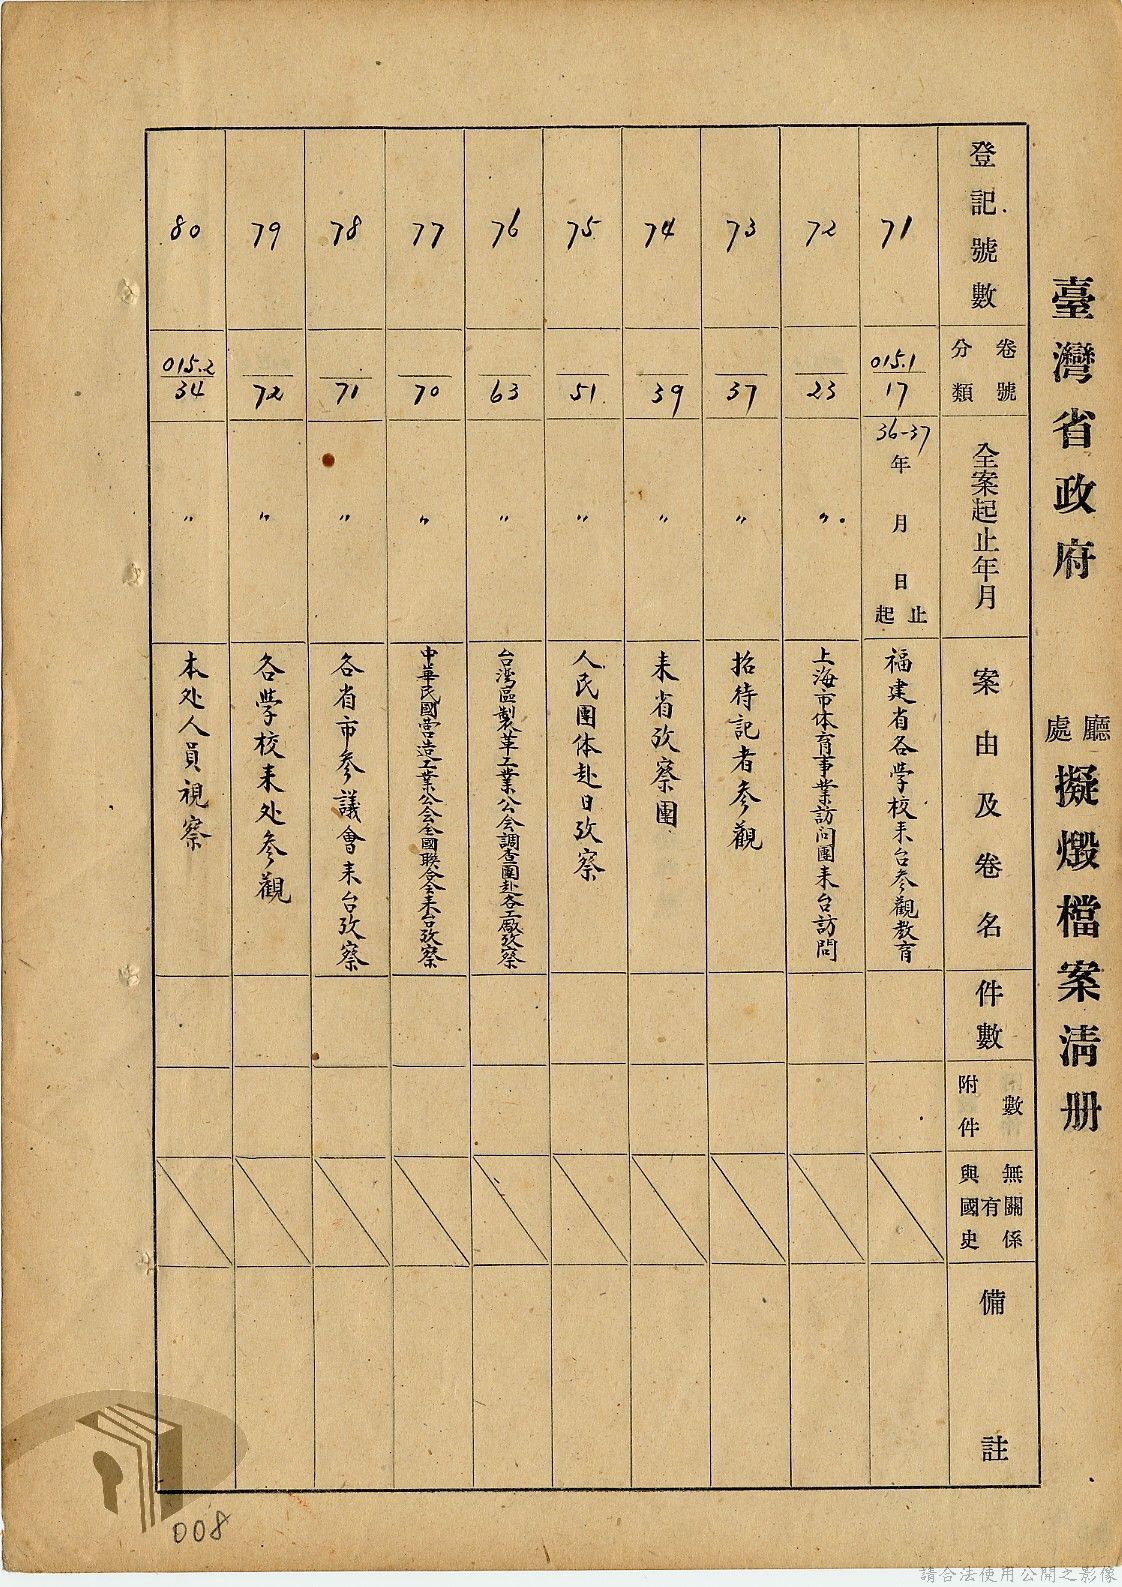 臺灣省政府 廳處 擬燬檔案清册
登記號數 分類 卷號 全案起止年月 案由及卷名 件數 附件數 與國史有無關係 備註
71 015.1/17 36-37年月日起止 福建省各學校来台参觀教育
72 23 〃 上海市体育事業訪问團来台訪問
73 37 〃 招待記者参觀
74 39 〃 来省攷察團
75 51 〃 人民團体赴日攷察
76 63 〃 台湾區製革工業公会調查團赴各工廠攷察
77 70 〃 中華民國营造工業公会全國联合会来台攷察
78 71 〃 各省市参議會来台攷察
79 72 〃 各學校来处参觀
80 015.2/34 〃 本处人員視察
008
請合法使用公開之影像